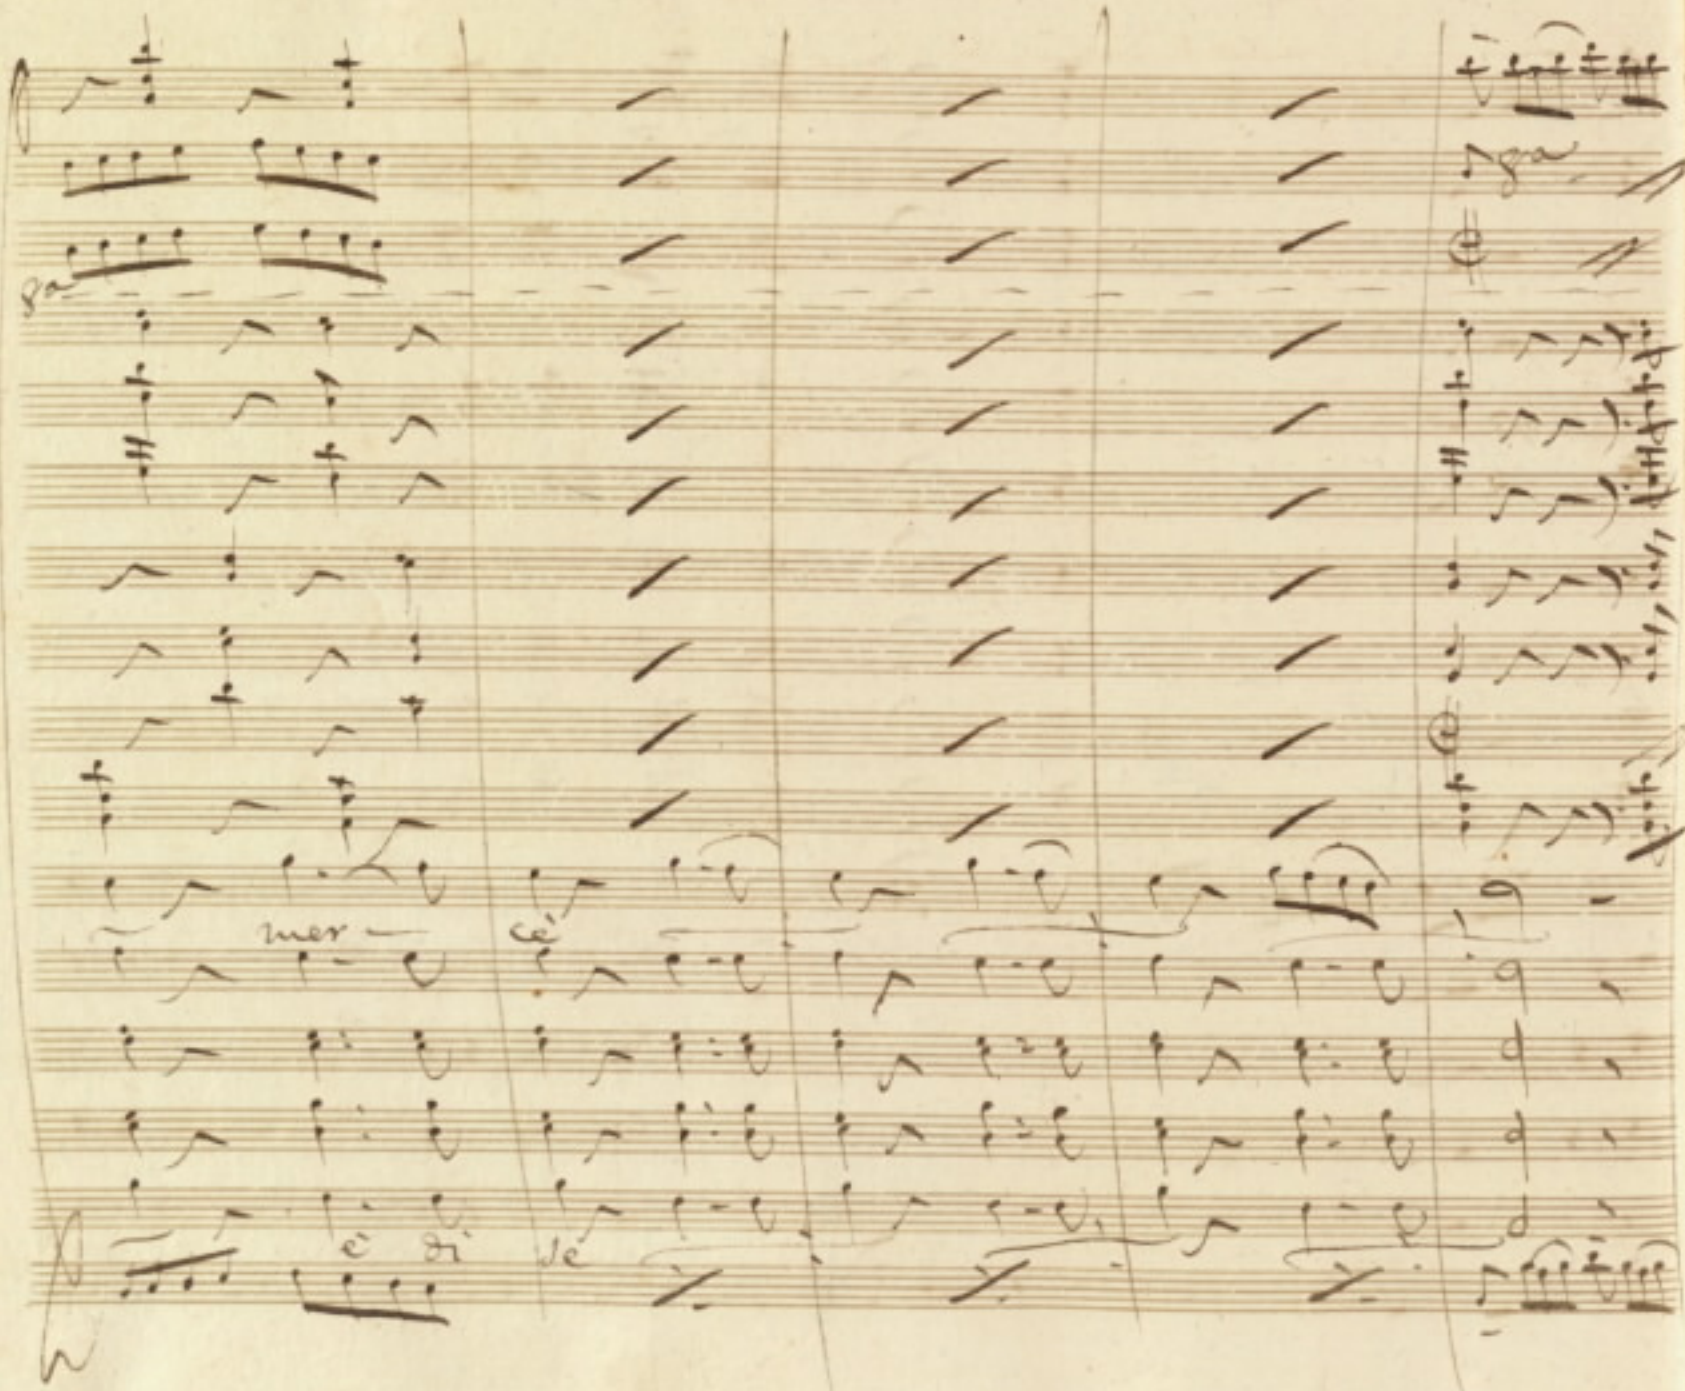 8a
8a
mer - cè
è di se